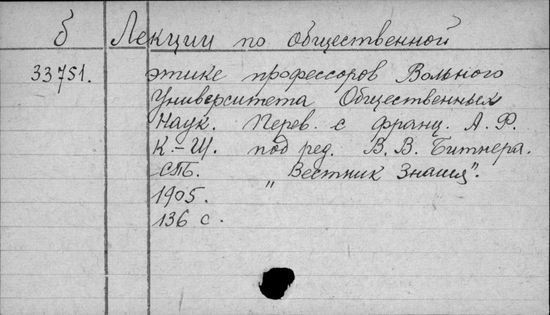 б Лекции по общественной
33751. этике профессоров Вольного
Университета Общественных
Наук. Перев. с франц. А. Ф.
К.-Щ. под ред. В. В. Битнера.
СПб. „Вестник Знания".
1905.
136 с.